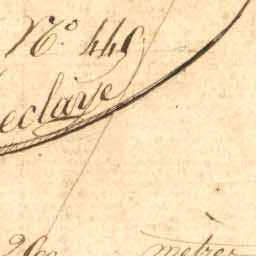 N.º 449
eclaye
200 metres